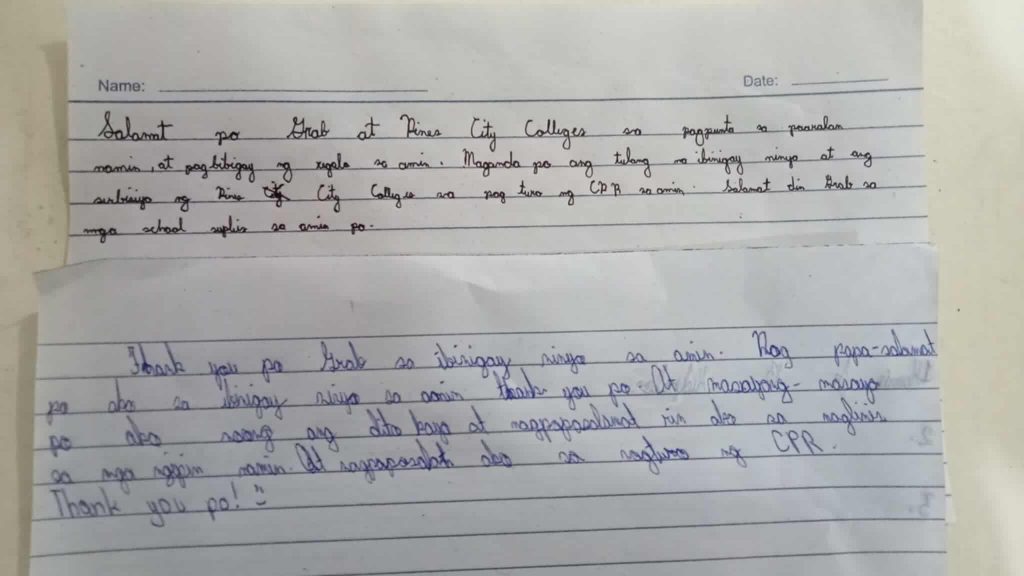 Name: Date:
Salamat po Grab at Pines City Colleges sa pagpunta sa paaralan
namin, at pagbibigay ng regalo sa amin. Maganda po ang tulang na ibinigay ninyo at ang
serbisiyo ng Pines City Colleges sa pag turo ng CPR sa amin. Salamat din Grab sa
mga school suplis sa amin po.
Thank you po Grab sa ibinigay ninyo sa amin. Nag papa-salamat
po ako sa ibinigay ninyo sa amin thank you po. At masayang-masaya
po ako noong ang dito kayo at nagpapasalamat rin ako sa naglinis
sa mga ngipin namin. At ako sa nagturo ng CPR.
Thank you po!
1.
2.
3.